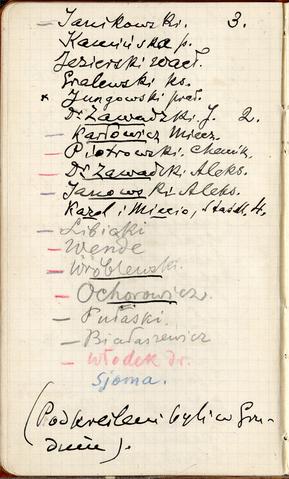 — Janikowski. 3.
Kamińska p.
Jezierski wacł.
Gralewski ks.
× Jungowski prał.
Dr Zawadzki J. 2.
— Karłowicz Miecz.
— Piotrowski. Chemik.
— Dr Zawadzki Aleks.
— Janowski Aleks.
Karol i Miecio, H.
— Libicki
— Wende
— Wróblewski.
— Ochorowicz.
— Pułaski.
— Białaszewicz
— Włodek dr.
Sjoma.
(Podkreśleni byli w Gru-
dniu).